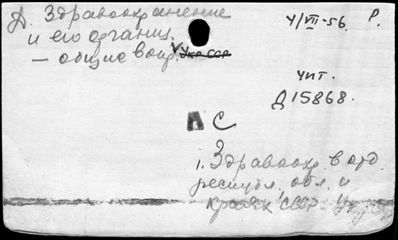 Д. Здравоохранение
и его организ.
– общие вопр. Укр. ССР
4/VII-56. Р.
чит.
Д15868.
А С
1. Здравоохр. в отд.
республ. обл. и
краях СССР